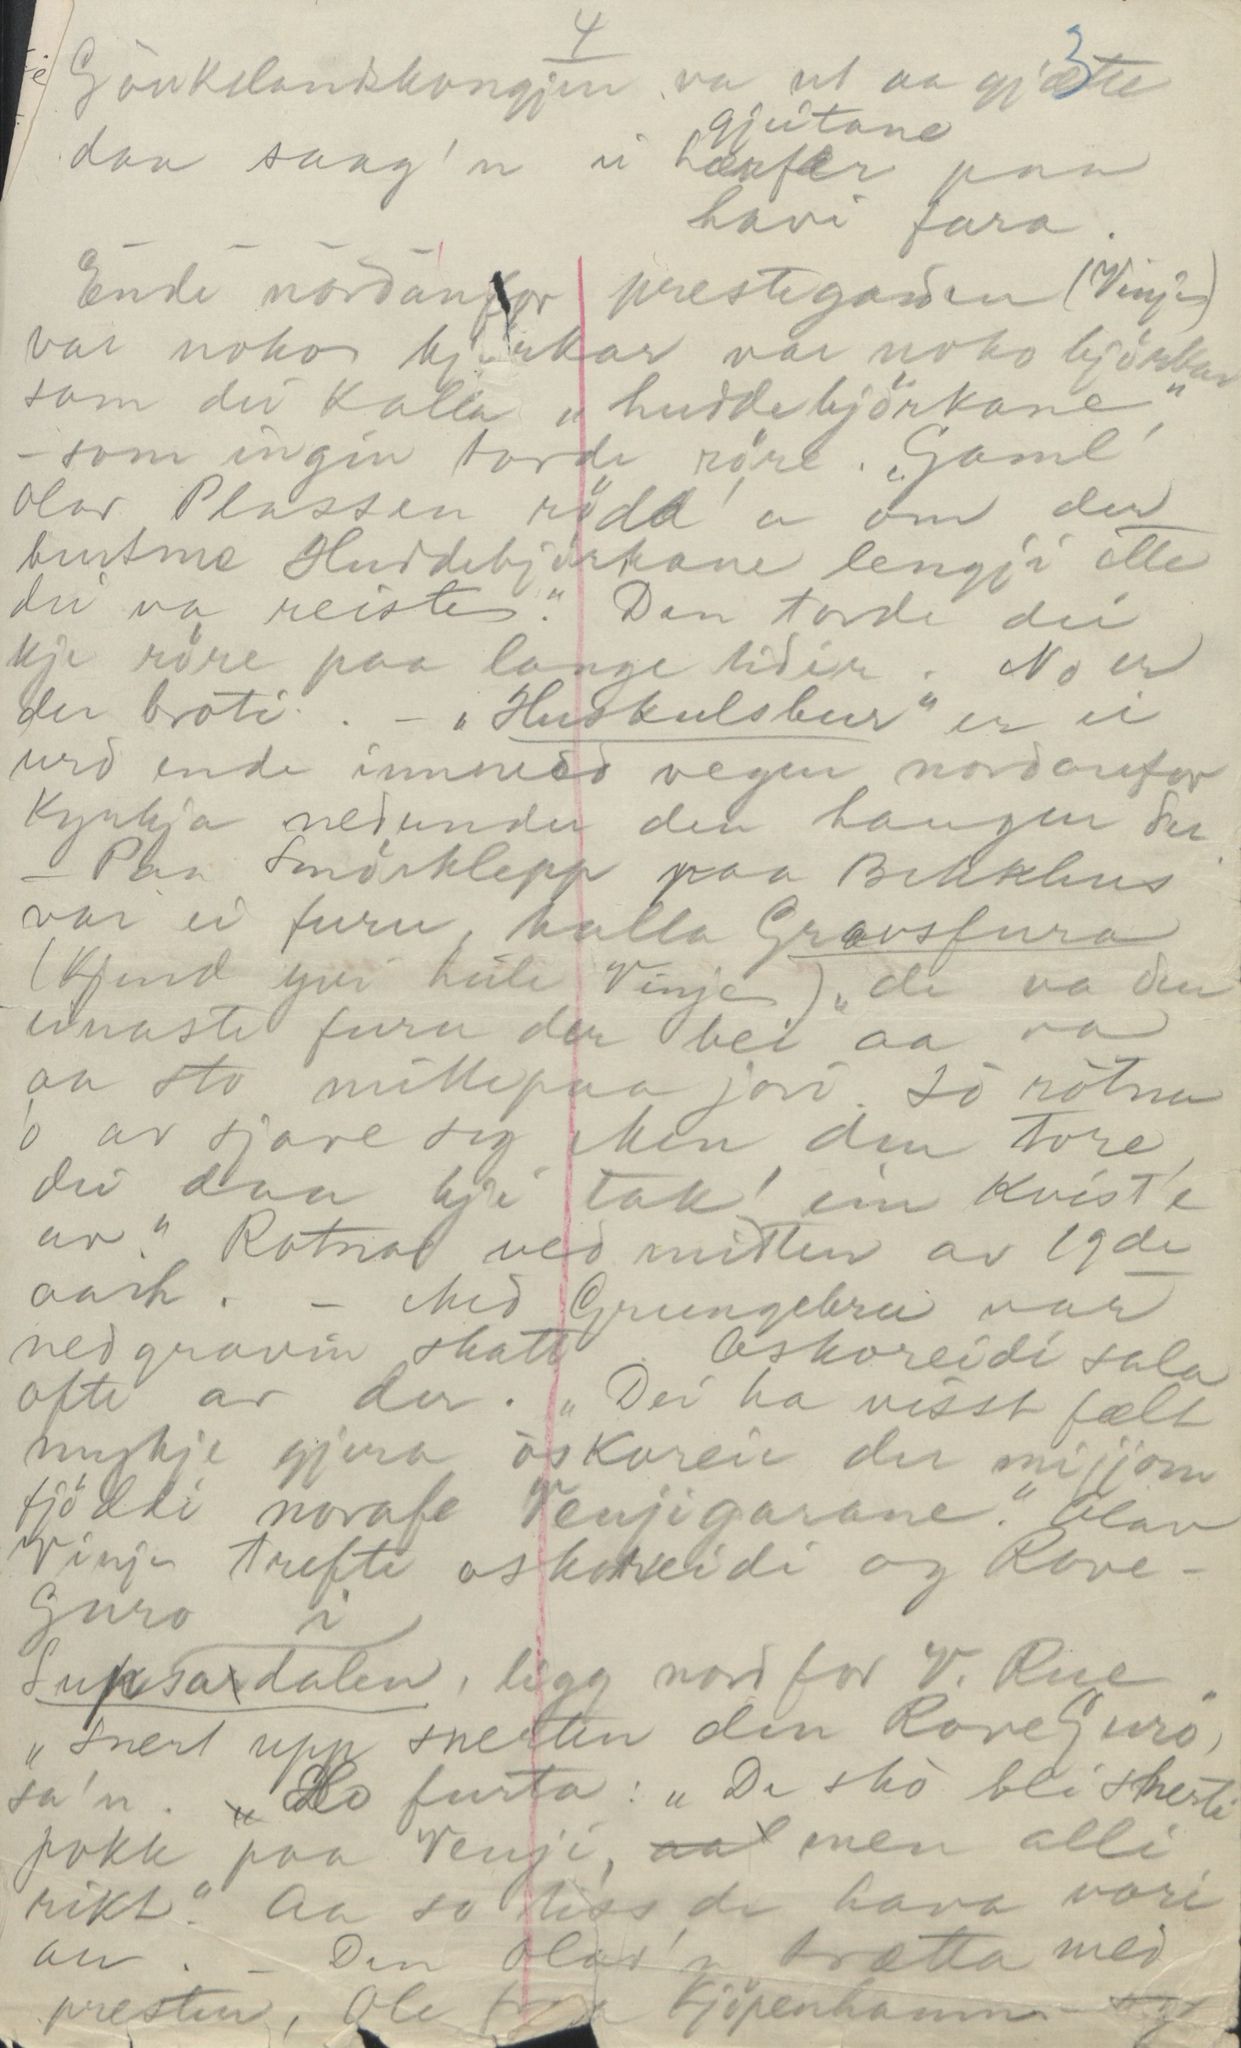 4
3
Göukelandskongjen va ut aa gjætte
gjeitane
daa saag'n ei hærfær paa
havi fara.
Ende nordanfor prestegarden (Vinje)
var nokor bjørkar var noko björkar
som dei kalla „huddebjörkane",
- som ingin torde röre. „Gaml'
Olav Plassen rödd'a om der
burtme Huddebjörkane lengji ette
dei va reiste." Den torde dei
kje röre paa lange tidir. No er
der broti. - „Huskulsbur" er ei
urd ende innmed vegen nordanfor
Kyrkja nedunder den haugen der.
- Paa Smörklepp paa Bakkhus
var ei furu, kalla Gravsfura
(Kjend yvi heile Vinje) „de va den
einaste furu der bei aa va
aa sto mittepaa jori. Så rotna
o av sjave seg. Men den tore
dei daa kje tak' ein kvist'e
av." Rotna ved mitten av 19de
aarh. - Med Grungebru var
nedgravin skatt. Oskoreidi sala
ofte av der. „Dei ha visst fælt
mykje gjera öskoreie der mijjom
fjöddi norafe Venjigarane." Olav
Vinje trefte oskoreidi og Rove-
Guro i
Supsadalen, ligg nord for V. Rue.
„Snert upp snerten din RoveGuro,
sa'n. Ho furta: „De sko bli snerti
pokk paa Venji, men alli
rikt." Aa so tiss de hava vori
au. - Den Olav'n trætta med
presten, Ole fraa Kjöpenhamn